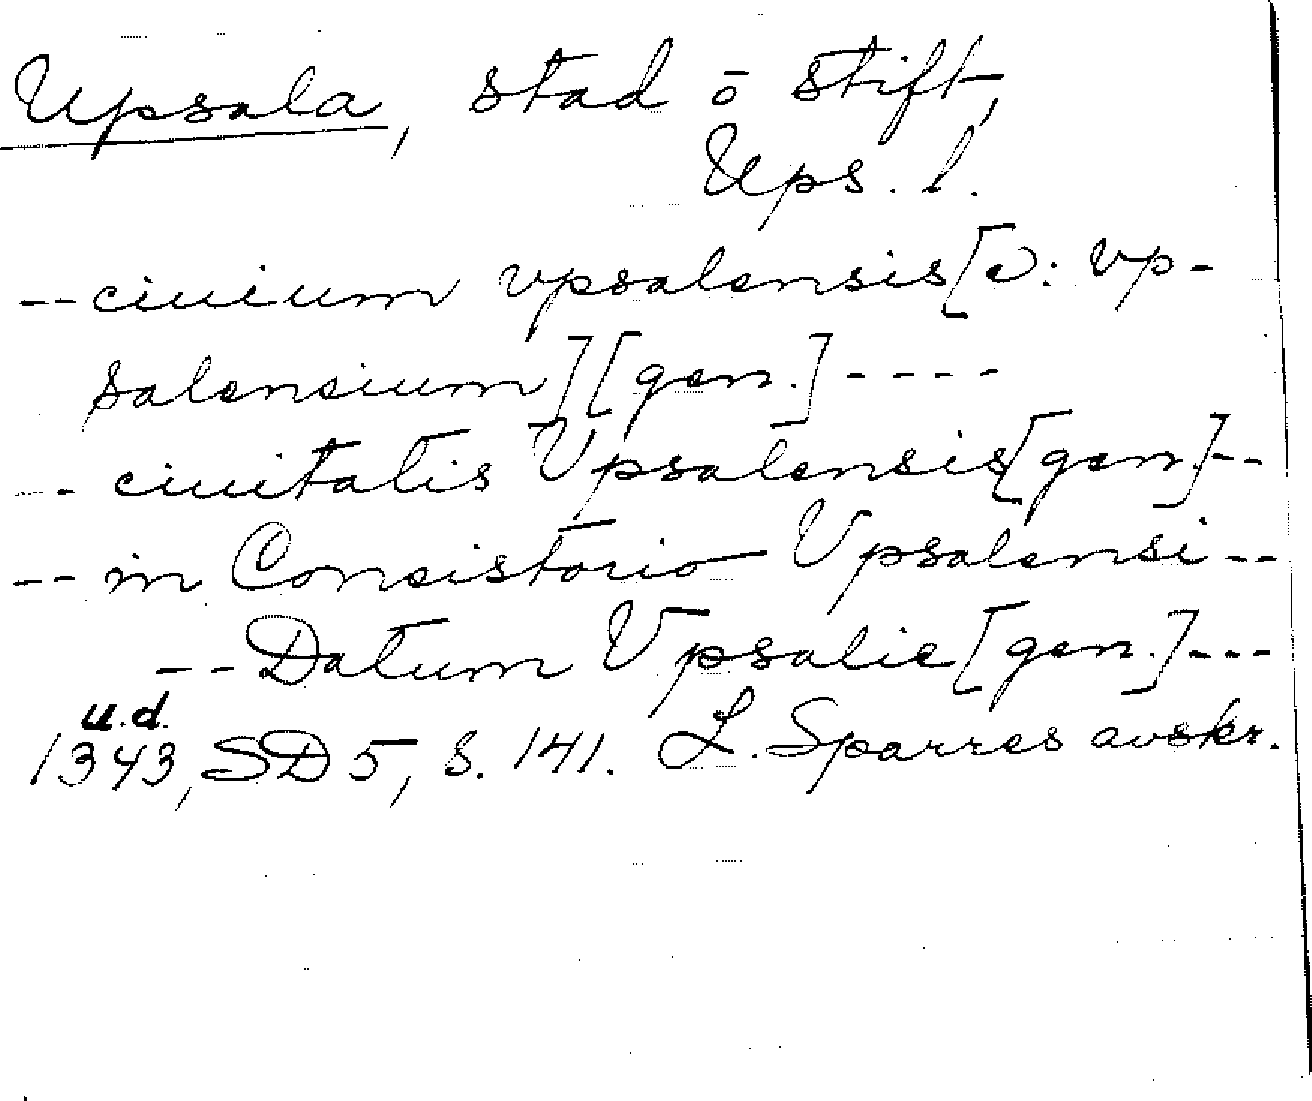 Upsala, stad o stift,
Ups. l.
-- ciuium vpsalensis [ɔ: vp-
salensium] [gen.] ----
-- ciuitatis Vpsalensis [gen.] --
-- in Consistorio Vpsalensi --
-- Datum Vpsalie [gen.] ---
u.d.
1343, SD 5, s. 141. L. Sparres avskr.